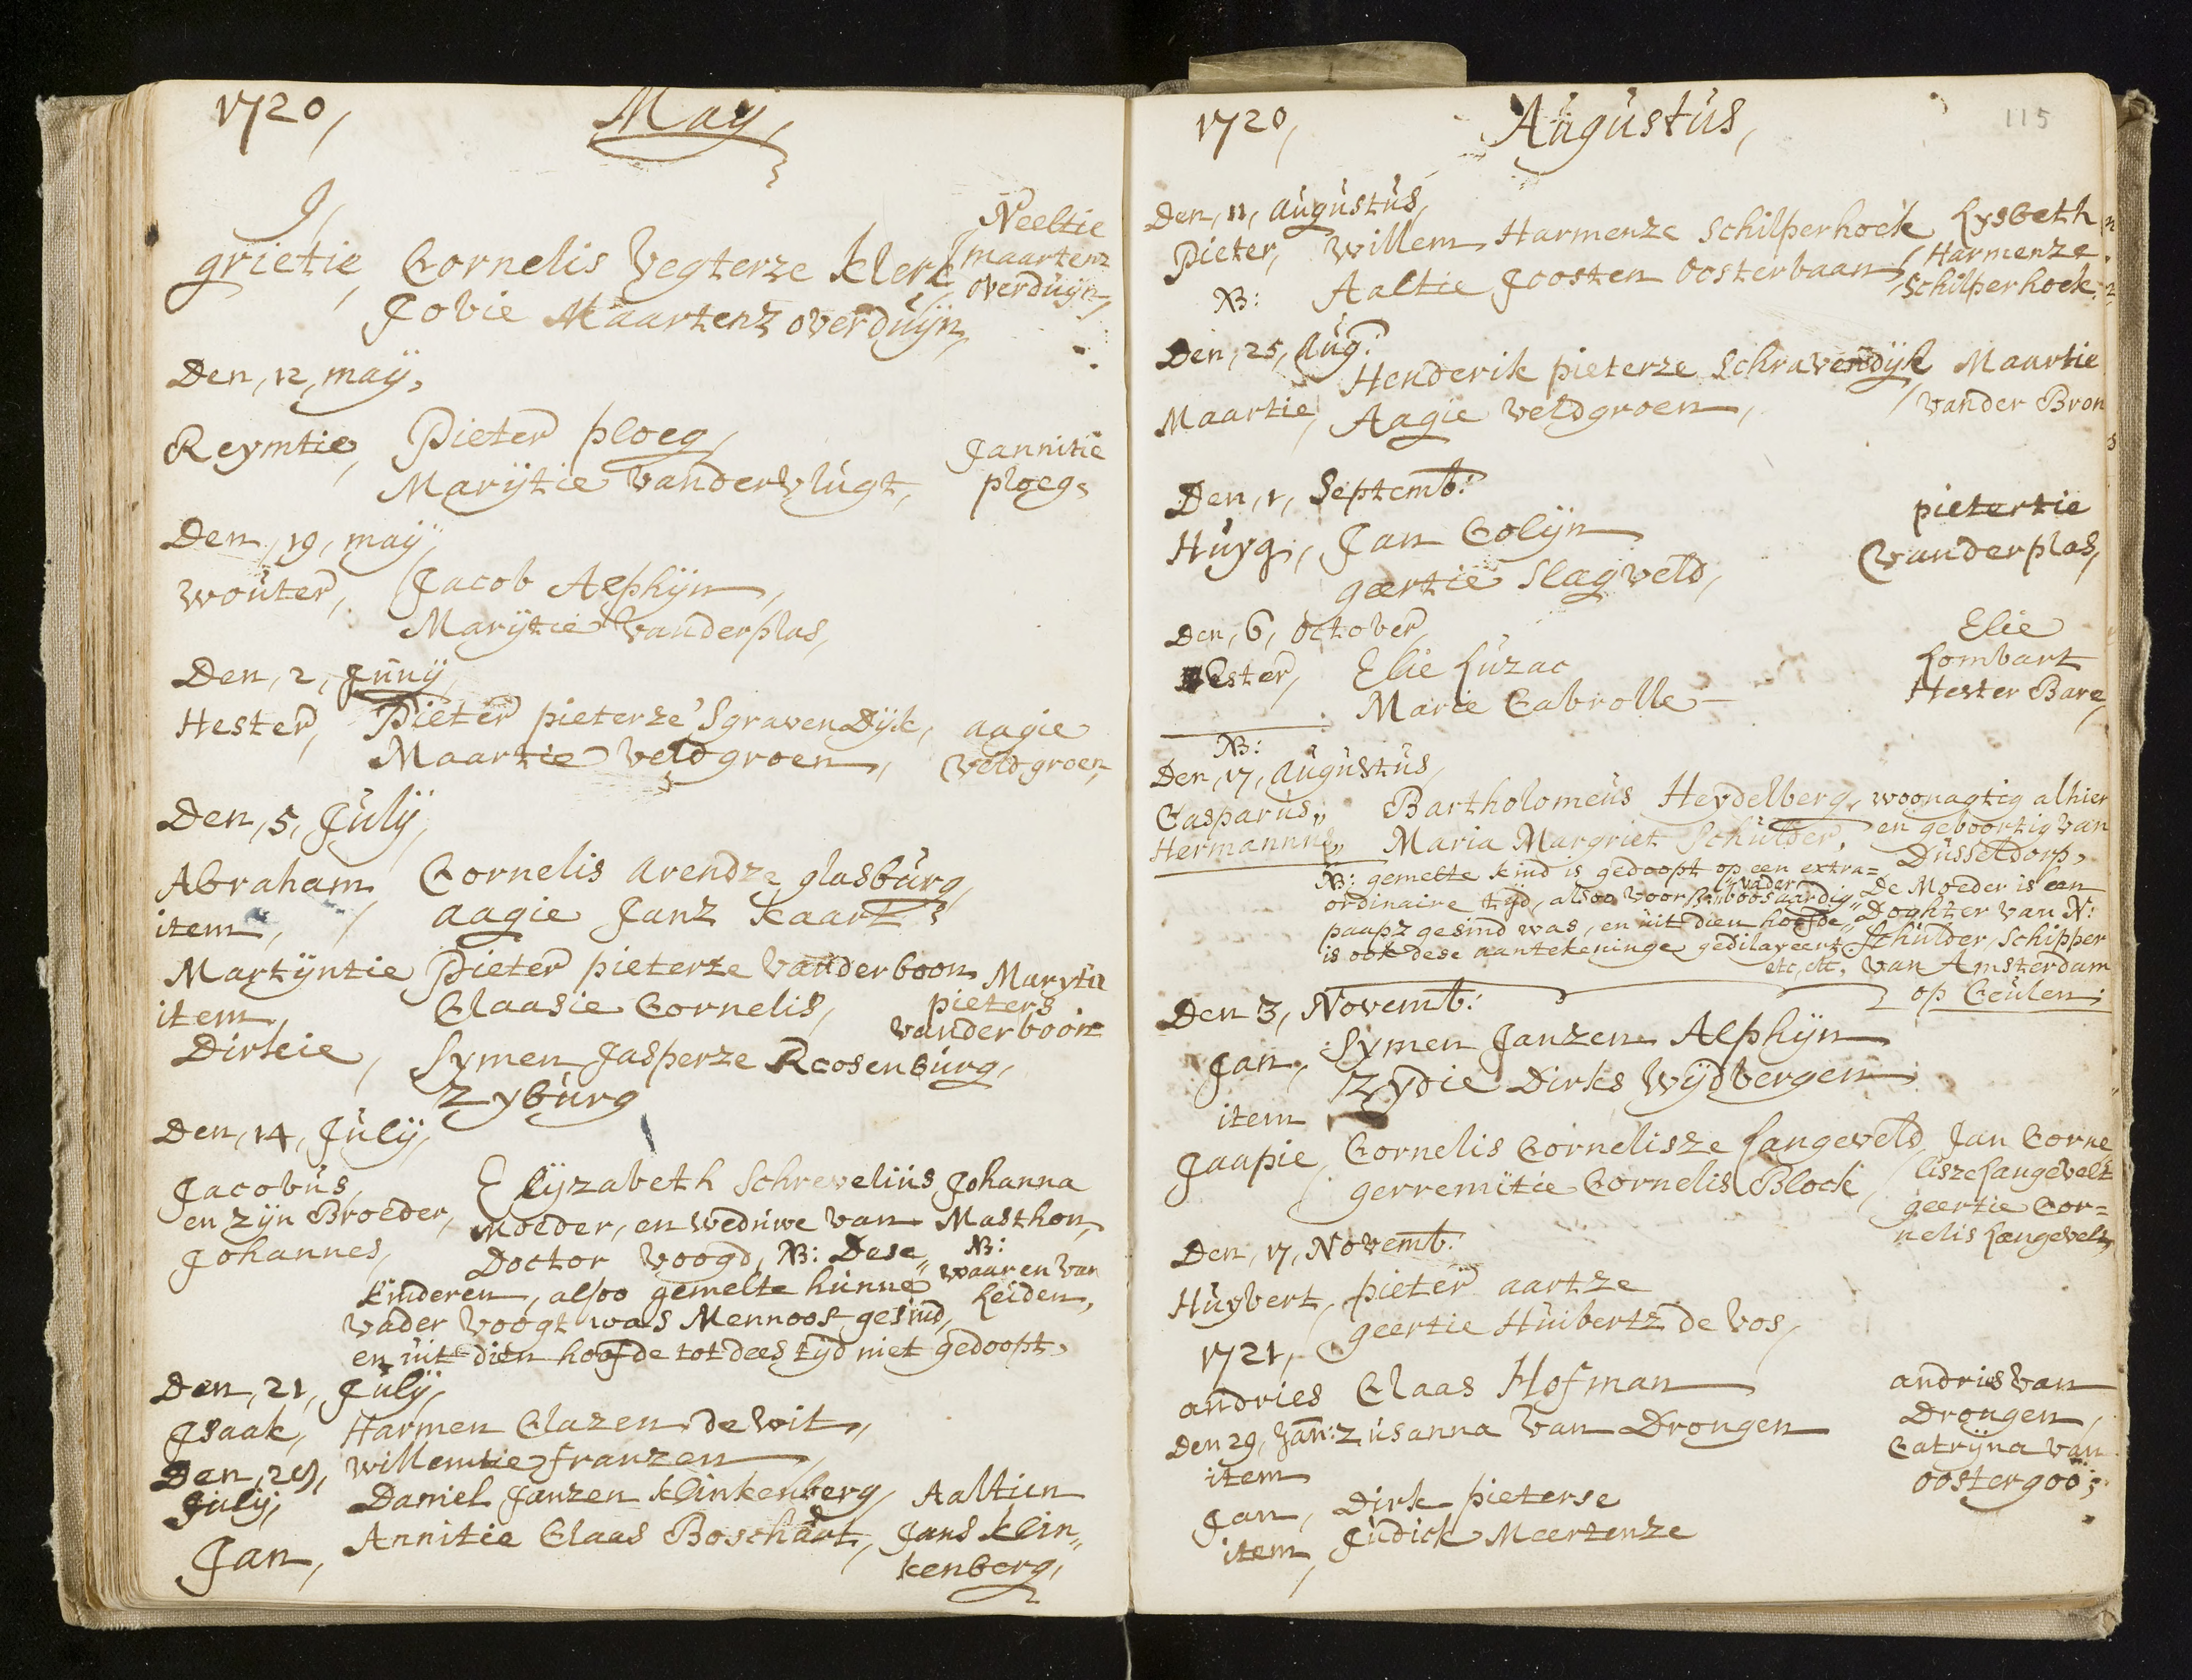 1720, May,
J,
grietie, Cornelis Vegterze klerk, Neeltie
maartenz
overduijn,
Jobie Maartenz overduijn,
Den, 12, maij,
Reymtie, Pieter ploeg, Jannitie
Marijtie vandervlugt, ploeg,
Den, 19, maij,
wouter, Jacob Alphijn,
Marijtie vanderplas,
Den, 2, Junij,
Hester, Pieter pieterze 'SgravenDijk, aagie
Maartie veldgroen, veldgroen,
Den, 5, Julij,
Abraham, Cornelis arendze glasburg,
item, aagie Janz kaart,
Martijntie Pieter pieterze vanderboon Marytie
item, Claasie Cornelis, pieters
vanderboon
Dirkie, Symen Jasperze Roosenburg,
Zyburg
Den, 14, Julij,
Jacobus, Elijzabeth Schrevelius Johanna
en zijn Broeder, Moeder, en weduwe van Masthon,
Johannes, Doctor voogd, NB: Dese,, NB:
kinderen, alsoo gemelte hunne waaren van
vader voogt was Mennoos gesind, Leiden,
en uit dien hoofde tot dees tijd niet gedoopt,
Den, 21, Julij,
Isaak, Harmen Clazen de wit,
willemtie franzen
Den, 28,
Julij, Daniel Janzen klinkenberg, Aaltien
Jan, Annitie Claas Boschart, Jans klin,,
kenberg,
1720, Augustus, 115
Den, 11, augustus,
Pieter, willem Harmenze Schilperhoek Lysbeth
NB: Aaltie Joosten oosterbaan, Harmenze
Schilperhoek,
Den, 25, Aug:
Henderik pieterze Schravendijk Maartie
Maartie, Aagie veldgroen, vander Bron
Den, 1, Septemb:
Huyg, Jan Colijn pietertie
geertie Slagveld, vanderplas,
Den, 6, october,
Ester, Elie Luzac Elie
Lombart
Marie Cabrolle Hester Bare,
NB:
Den, 17, augustus,
Casparus,, Bartholomeus Heydelberg, woonagtig alhier
Hermannus,, Maria Margriet Schulder, en geboortig van
Dusseldorp,
NB: gemelte kind is gedoopt op een extra= De Moeder is een
vader
ordinaire tijd, alsoo voorsz: boosaardig,, Doghter van N:
paaps gesind was, en uit dien hoofde,, Schulder, Schipper
is ook dese aantekeninge gedilayeert van Amsterdam
etc, etc, op Ceulen;
Den 3, Novemb:
Jan, Symen Janzen Alphijn
Zydie Dirks wijdbergen
item
Jaapie, Cornelis Cornelisze Langeveld, Jan Corne
lisze Langevelt
gerremitie Cornelis Block, geertie Cor=
nelis Langevelt,
Den, 17, Novemb:
Huybert, pieter aartze
geertie Huibertz de vos,
1721,
andries Claas Hofman andries van
Drongen,
Den 29, Jan: Zusanna van Drongen Catrijna van
item oostergoo;
Jan, Dirk pieterse
item, Judick Meertenze